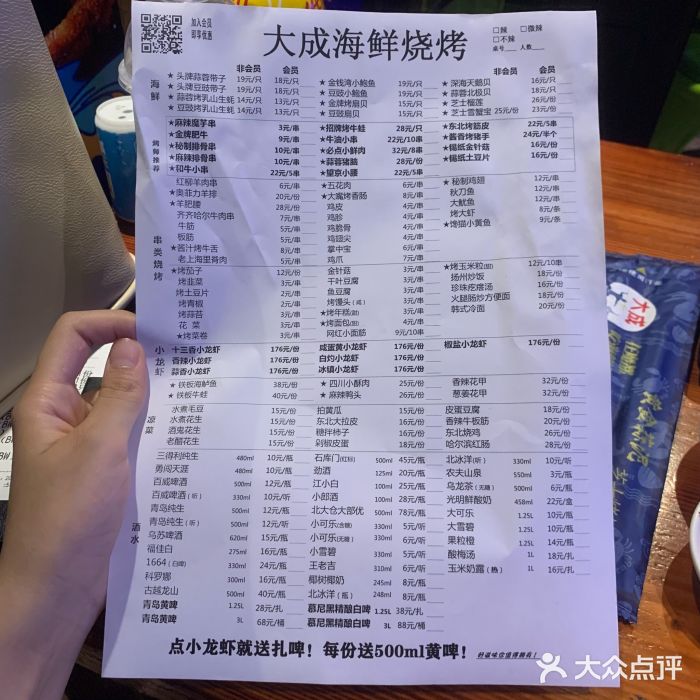 加入会员
即享优惠
大成海鲜烧烤
□辣 □微辣
□不辣
桌号 人数
非会员 会员
海鲜
★头牌蒜蓉带子 19元/只 18元/只
★头牌豆豉带子 19元/只 18元/只
★蒜蓉烤乳山生蚝 14元/只 13元/只
★豆豉烤乳山生蚝 14元/只 13元/只
非会员 会员
★金钱湾小鲍鱼 19元/只
★豆豉小鲍鱼 19元/只
★金牌烤扇贝 15元/只
★豆豉扇贝 15元/只
★深海天鹅贝 16元/只
★蒜蓉北极贝 20元/份
★芝士榴莲 26元/份
★芝士雪蟹宝 25元/份 23元/份
烤师推荐
★麻辣魔芋串 3元/串
★金牌肥牛 9元/串
★秘制排骨串 10元/串
★麻辣排骨串 10元/串
★和牛小串 22元/5串
★招牌烤牛蛙 28元/只
★牛油小串 22元/10串
★必点小鲜肉 32元/8串
★蒜蓉猪脑 28元/份
★望京小腰 22元/5串
★东北烤筋皮 22元/5串
★酱香烤猪手 24元/半个
★锡纸金针菇 16元/份
★锡纸土豆片 16元/份
串类烧烤
红柳羊肉串 6元/串
★奥菲力羊排 20元/份
★羊肥腰 28元/份
齐齐哈尔牛肉串 7元/串
牛筋 5元/串
板筋 5元/串
★酱汁烤牛舌 8元/串
老上海里脊肉 5元/串
★五花肉 6元/串
★大嘴烤香肠 8元/串
鸡皮 4元/串
鸡胗 4元/串
鸡脆骨 4元/串
鸡翅尖 4元/串
掌中宝 6元/串
鸡爪 7元/串
★秘制鸡翅 12元/串
秋刀鱼 12元/串
大鱿鱼 12元/串
烤大虾 9元/串
★馋猫小黄鱼 8元/条
★烤茄子 12元/份
烤韭菜 3元/串
烤土豆片 2元/串
烤青椒 2元/串
烤蒜苔 3元/串
花 菜 3元/串
★烤菜卷 3元/串
金针菇 3元/串
千叶豆腐 3元/串
鱼豆腐 3元/串
烤馒头(咸) 3元/串
★烤年糕(甜) 3元/串
★烤面包(甜) 4元/串
网红小面筋 9元/10串
★烤玉米粒(甜) 12元/10串
扬州炒饭 18元/份
珍珠疙瘩汤 16元/份
火腿肠炒方便面 18元/份
韩式冷面 20元/份
小龙虾
十三香小龙虾 176元/份
香辣小龙虾 176元/份
蒜香小龙虾 176元/份
咸蛋黄小龙虾 176元/份
白灼小龙虾 176元/份
冰镇小龙虾 176元/份
椒盐小龙虾 176元/份
★铁板海鲈鱼 38元/份
★铁板牛蛙 40元/份
★四川小酥肉 25元/份
★麻辣鸭头 26元/份
香辣花甲 32元/份
葱姜花甲 32元/份
凉菜
水煮毛豆 15元/份
水煮花生 15元/份
酒鬼花生 15元/份
老醋花生 15元/份
拍黄瓜 15元/份
东北大拉皮 15元/份
糖拌柿子 16元/份
剁椒皮蛋 18元/份
皮蛋豆腐 18元/份
香辣牛板筋 20元/份
东北烧鸡 26元/份
哈尔滨红肠 28元/份
酒水
三得利纯生 480ml 10元/瓶
勇闯天涯 480ml 10元/瓶
百威啤酒 500ml 12元/瓶
百威啤酒(听) 330ml 10元/听
青岛纯生 500ml 12元/瓶
青岛纯生(听) 500ml 12元/听
乌苏啤酒 620ml 15元/瓶
福佳白 275ml 16元/瓶
1664(白啤) 330ml 24元/瓶
科罗娜 300ml 16元/瓶
古越龙山 500ml 40元/瓶
青岛黄啤 1.25L 28元/扎
青岛黄啤 3L 68元/桶
石库门(红标) 500ml 45元/瓶
劲酒 125ml 20元/瓶
江小白 100ml 25元/瓶
小郎酒 100ml 28元/瓶
北大仓大部优 500ml 78元/瓶
小可乐(含糖) 330ml 5元/听
小可乐(无糖) 330ml 6元/听
小雪碧 330ml 5元/听
王老吉 310ml 6元/听
椰树椰奶 245ml 8元/听
北冰洋(瓶) 248ml 8元/瓶
慕尼黑精酿白啤 1.25L 38元/扎
慕尼黑精酿白啤 3L 88元/桶
北冰洋(听) 330ml 10元/听
农夫山泉 550ml 3元/瓶
乌龙茶(无糖) 500ml 6元/瓶
光明鲜酸奶 458ml 22元/盒
大可乐 1.25L 10元/瓶
大雪碧 1.25L 10元/瓶
果粒橙 1.25L 14元/瓶
酸梅汤 1L 18元/扎
玉米奶露(热) 1L 16元/扎
点小龙虾就送扎啤！每份送500ml黄啤！
好滋味你值得拥有！
大成
大众点评